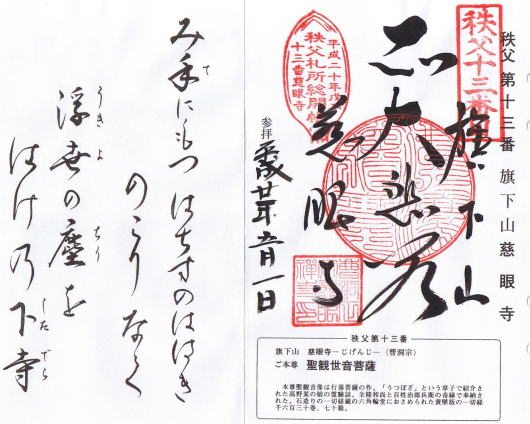 秩父第十三番 旗下山慈眼寺
秩父十三番
旗下山
大悲
慈眼寺
平成二十年戊
秩父札所総開帳
十三番慈眼寺
参拝 平成廿年五月一日
秩父第十三番
旗下山 慈眼寺―じげんじ―（曹洞宗）
ご本尊 聖観世音菩薩
本尊聖観音像は行基菩薩の作。「うつぼざ」という草子で紹介さ
れた高野某の娘の霊験談。全隆和尚と百姓治郎兵衛の奇縁で奉納さ
れた。石造りの一切経蔵の六角輪堂におさめられた黄檗版の一切経
千六百三十巻、七十箱。
み手にもつ はちすのははき
のこりなく
浮世の塵を
はけ乃下寺